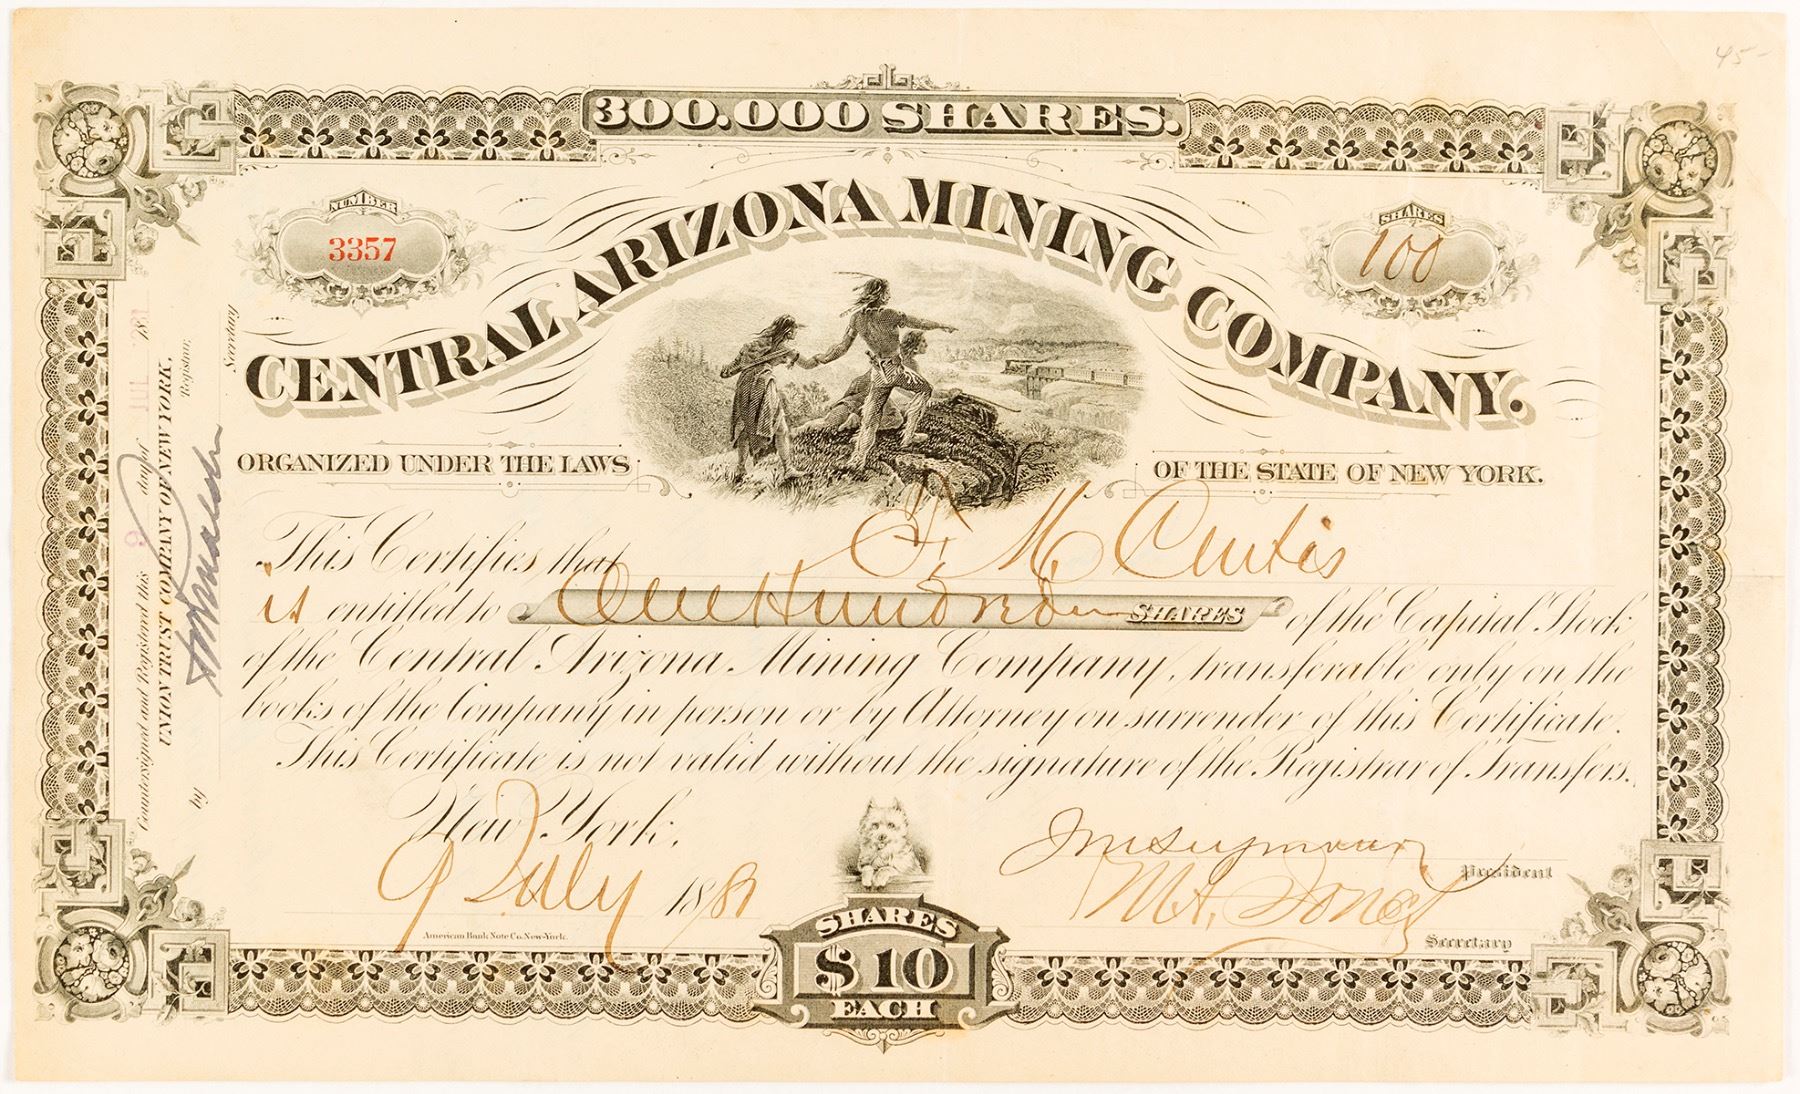 45-
300.000 SHARES.
NUMBER
3357
SHARES
100
CENTRAL ARIZONA MINING COMPANY.
ORGANIZED UNDER THE LAWS OF THE STATE OF NEW YORK.
This Certifies that F. M. Curtis
is entitled to One Hundred SHARES of the Capital Stock
of the Central Arizona Mining Company, transferable only on the
books of the Company in person or by Attorney on surrender of this Certificate.
This Certificate is not valid without the signature of the Registrar of Transfers.
New York,
9 July 1881
American Bank Note Co. New-York.
SHARES
$10
EACH
Jm Seymour
President
Secretary
Countersigned and Registered this 9 day of JUL 1881
UNION TRUST COMPANY OF NEW YORK.
Registrar.
by
Secretary